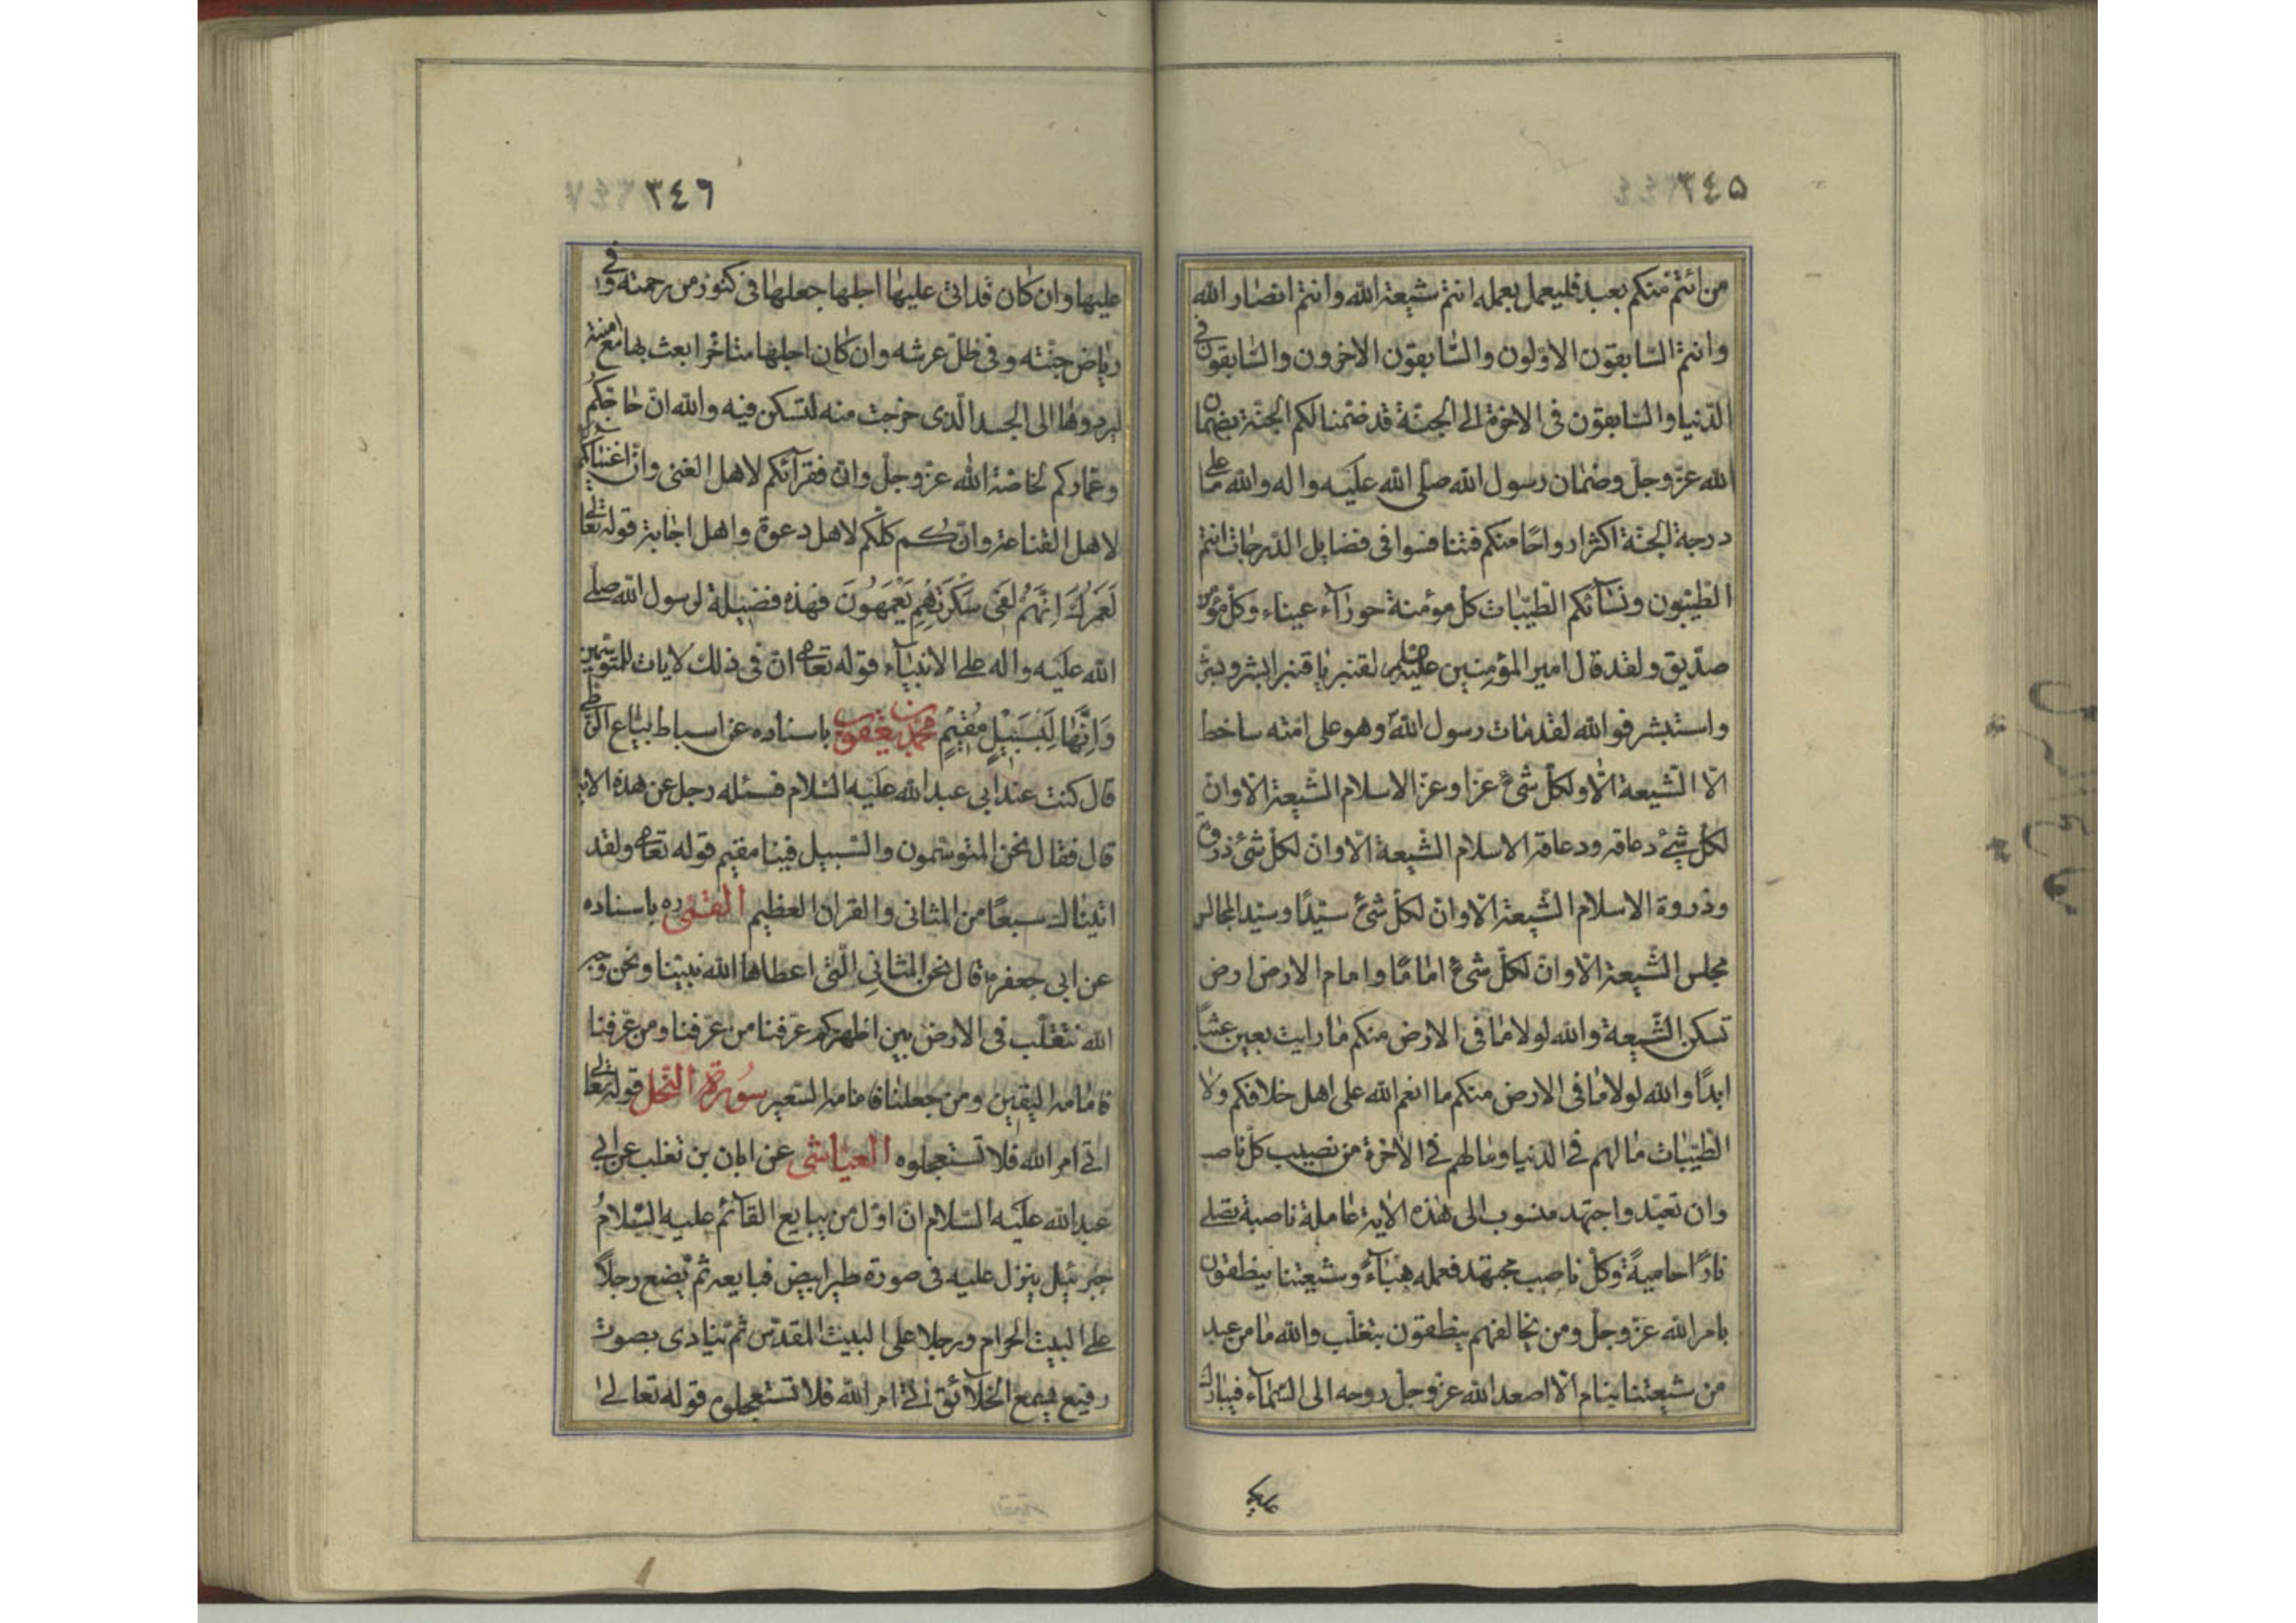 ٣٤٥
من ائتم منكم بعبد فليعمل بعمله انتم شيعة الله وانتم انصار الله
وانتم السابقون الاولون والسابقون الاخرون والسابقون في
الدنيا والسابقون فى الاخرة الى الجنة قد ضمنا لكم الجنة بضمان
الله عز وجل وضمان رسول الله صلى الله عليه واله والله ما على
درجة الجنة اكثر ارواحا منكم فتنافسوا فى فضايل الدرجات انتم
الطيبون ونسائكم الطيبات كل مؤمنة حورآء عيناء وكل مؤمن
صديق ولقد قال امير المؤمنين عليه لقنبر يا قنبر ابشر وبشر
واستبشر فوالله لقد مات رسول الله وهو على امته ساخط
الا الشيعة الا ولكل شئ عزا وعز الاسلام الشيعة الا وان
لكل شئ دعامة ودعامة الاسلام الشيعة الا وان لكل شئ ذروة
وذروة الاسلام الشيعة الا وان لكل شئ سيدا وسيد المجالس
مجلس الشيعة الا وان لكل شئ اماما وامام الارض ارض
تسكن الشيعة والله لولا ما فى الارض منكم ما رايت بعين عشبا
ابدا والله لولا ما فى الارض منكم ما انعم الله على اهل خلافكم ولا
الطيبات ما لهم في الدنيا وما لهم في الاخرة من نصيب كل ناصب
وان تعبد واجتهد منسوب الى هذه الاية عاملة ناصبة تصلى
نارا حامية وكل ناصب مجتهد فعمله هباء وشيعتنا ينطقون
بامر الله عز وجل ومن يخالفهم ينطقون بتغلب والله ما من عبد
من شيعتنا ينام الا اصعد الله عز وجل روحه الى السماء فيبارك
٣٤٦
عليها وان كان قد اتى عليها اجلها جعلها فى كنوز من رحمته وفي
رياض جنته وفى ظل عرشه وان كان اجلها متاخرا بعث بها مع امنته
ليردوها الى الجسد الذى خرجت منه لتسكن فيه والله ان حاجكم
وعماركم لخاصة الله عز وجل وان فقرآئكم لاهل الغنى وان اغنيائكم
لاهل القناعة وانكم كلكم لاهل دعوة واهل اجابة قوله تعالى
لَعَمْرُكَ اِنَّهُمْ لَفى سَكْرَتِهِمْ يَعْمَهُونَ فهذه فضيلة لرسول الله صلى
الله عليه واله على الانبيآء قوله تعا ان فى ذلك لايات للمتوسمين
وَاِنَّهَا لَبِسَبِيْلٍ مُقِيْمٍ محمد بن يعقوب باسناده عن اسباط بياع الزطى
قال كنت عند ابى عبد الله عليه السلام فسئله رجل عن هذه الاية
قال فقال نحن المتوسمون والسبيل فينا مقيم قوله تعا ولقد
اتيناك سبعا من المثانى والقران العظيم القمى ره باسناده
عن ابى جعفر ع قال نحن المثانى التى اعطاها الله نبينا ونحن وجه
الله نتقلب فى الارض بين اظهركم عرفنا من عرفنا ومن عرفنا
فامامه اليقين ومن جهلنا فامامه السعير سورة النحل قوله تعالى
اتى امر الله فلا تستعجلوه العياشى عن ابان بن تغلب عن ابى
عبد الله عليه السلام ان اول من يبايع القآئم عليه السلام
جبرئيل ينزل عليه فى صورة طير ابيض فيبايعه ثم يضع رجلا
على البيت الحرام ورجلا على البيت المقدس ثم ينادى بصوت
رفيع يسمع الخلآئق اتى امر الله فلا تستعجلوه قوله تعالى